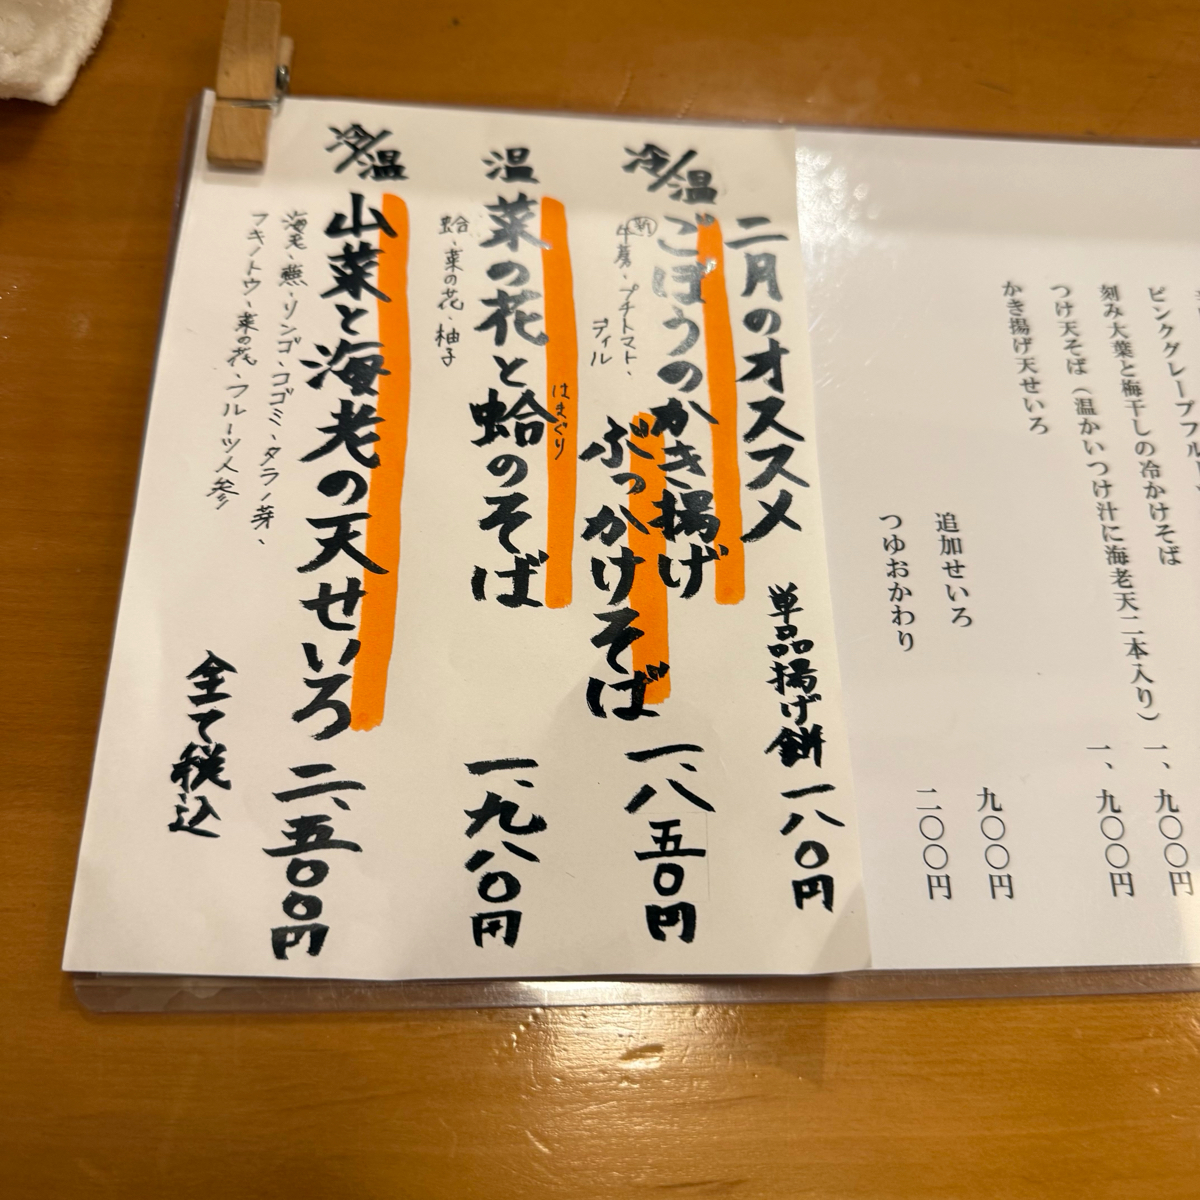 ピンクグレープフル
刻み大葉と梅干しの冷かけそば 一、九〇〇円
つけ天そば（温かいつけ汁に海老天二本入り） 一、九〇〇円
かき揚げ天せいろ
追加せいろ 九〇〇円
つゆおかわり 二〇〇円
二月のオススメ 単品揚げ餅 一八〇円
冷/温 ごぼうのかき揚げ
ぶっかけそば 一、八五〇円
新牛蒡、プチトマト、
ディル
温 菜の花と蛤のそば 一、九八〇円
はまぐり
蛤、菜の花、柚子
冷/温 山菜と海老の天せいろ 二、五〇〇円
海老、蕪、リンゴ、コゴミ、タラノ芽、
フキノトウ、菜の花、フルーツ人参
全て税込